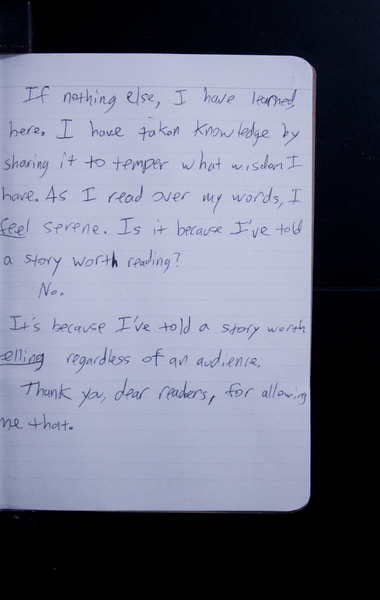 If nothing else, I have learned
here. I have taken knowledge by
sharing it to temper what wisdom I
have. As I read over my words, I
feel serene. Is it because I've told
a story worth reading?
No.
It's because I've told a story worth
telling regardless of an audience.
Thank you, dear readers, for allowing
me that.